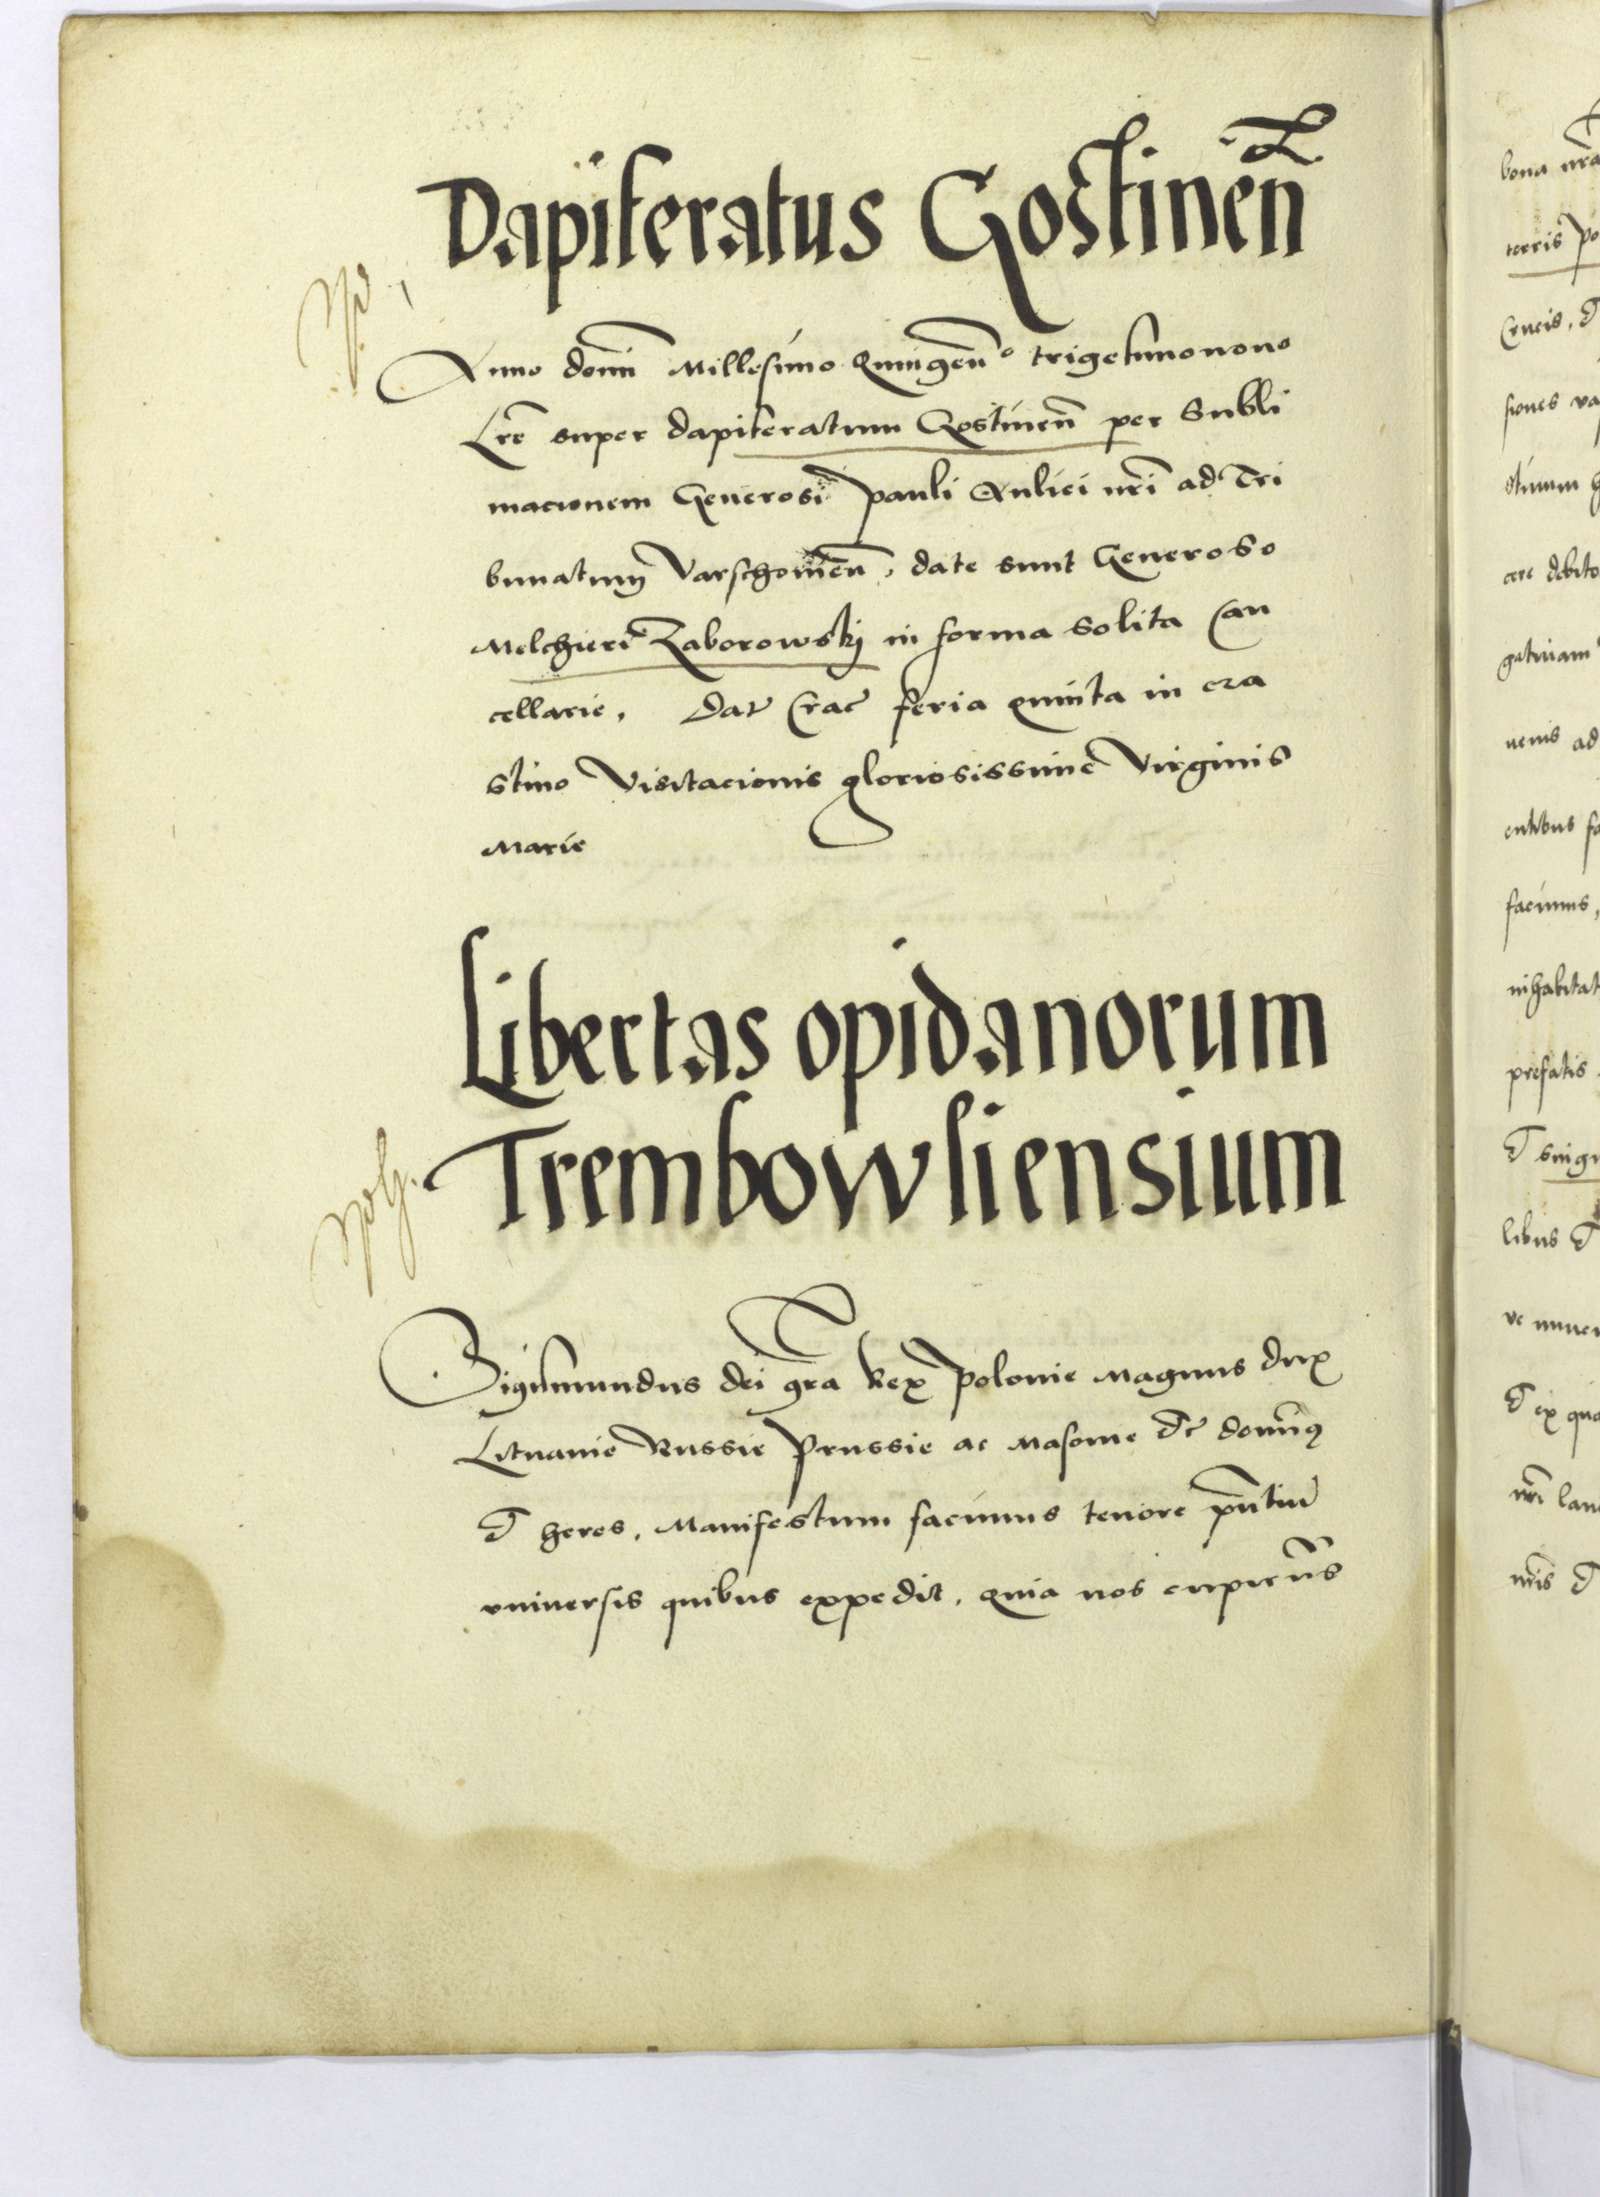 Dapiferatus Gostinen
Anno domi Millesimo Quingen° trigesimonono
Lre super dapiferatum Gostinen per Subli
macionem Generosi Pauli Aulici nri ad Tri
bunatum Varschovien, date sunt Generoso
Melchiori Zaborowskj in forma solita Can
cellarie, Dat Crac feria quinta in cra
stino Visitacionis gloriosissime Virginis
Marie
Libertas opidanorum
Trembowliensium
Sigismundus dei gra Rex Polonie Magnus dux
Lituanie Russie Prussie ac Masovie etc domi9
et heres, Manifestum facimus tenore pntiu
universis quibus expedit, quia nos cupientes
bona nra
ceteris po
Crucis, et
siones
cere debito
gativam
venis ad
entibus fa
facimus,
inhabitat
prefatis
et singu
libus et
ve mune
et ex qua
nri lan
nris et